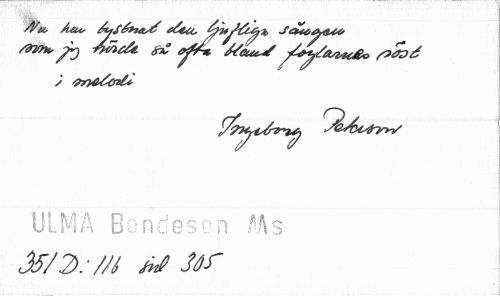 Nu har tystnat den ljufliga sången
som jag hörde så ofta bland foglarnas röst
i melodi
Ingeborg Peterson
ULMA Bondeson Ms
351 D: 116 sid 305